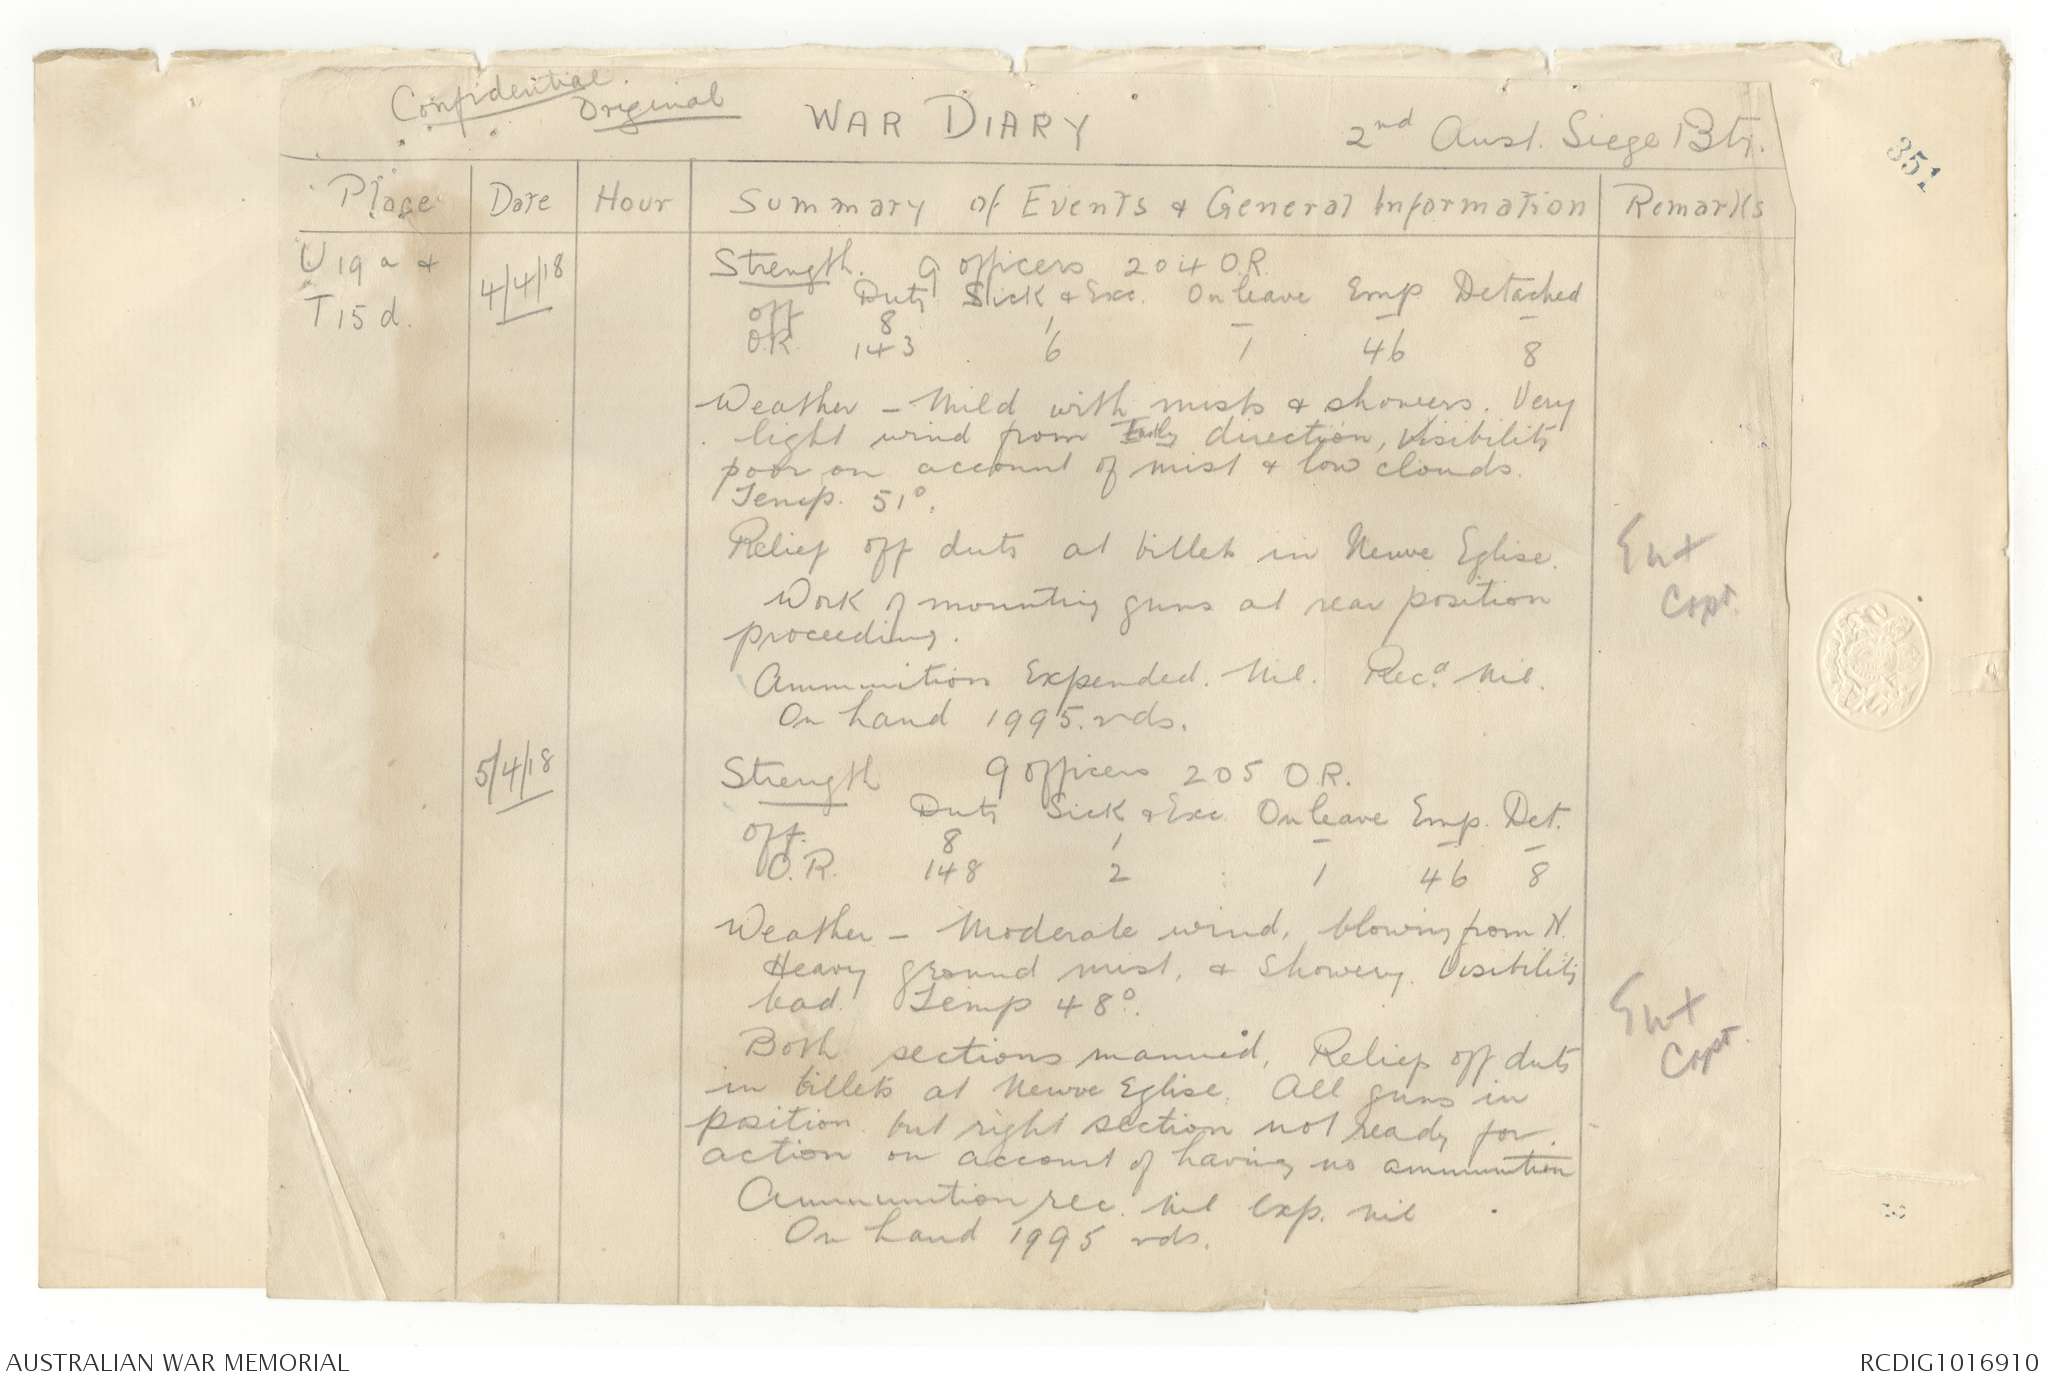 Confidential.
Original
WAR DIARY
2nd Aust. Siege Bty.
351
Place Date Hour Summary of Events & General Information Remarks
U19a & T15d.
4/4/18
Strength. 9 officers 204 O.R.
Duty Sick & Exc. On leave Emp Detached
Off 8 1 - - -
O.R. 143 6 1 46 8
Weather - Mild with mists & showers. Very
light wind from direction, visibility
poor on account of mist & low clouds.
Temp. 51°.
Relief off duty at billets in Neuve Eglise.
Work of mounting guns at rear position
proceeding.
Ammunition Expended. Nil. Recd. Nil.
On hand 1995. rds.
Capt.
5/4/18
Strength 9 officers 205 O.R.
Duty Sick & Exc. On leave Emp. Det.
Off. 8 1 - - -
O.R. 148 2 1 46 8
Weather - Moderate wind, blowing from N.
Heavy ground mist, & showery. Visibility
bad. Temp 48°.
Both sections manned, Relief off duty
in billets at Neuve Eglise. All guns in
position but right section not ready for
action on account of having no ammunition
Ammunition rec. Nil exp. nil
On hand 1995 rds.
Capt.
AUSTRALIAN WAR MEMORIAL
RCDIG1016910